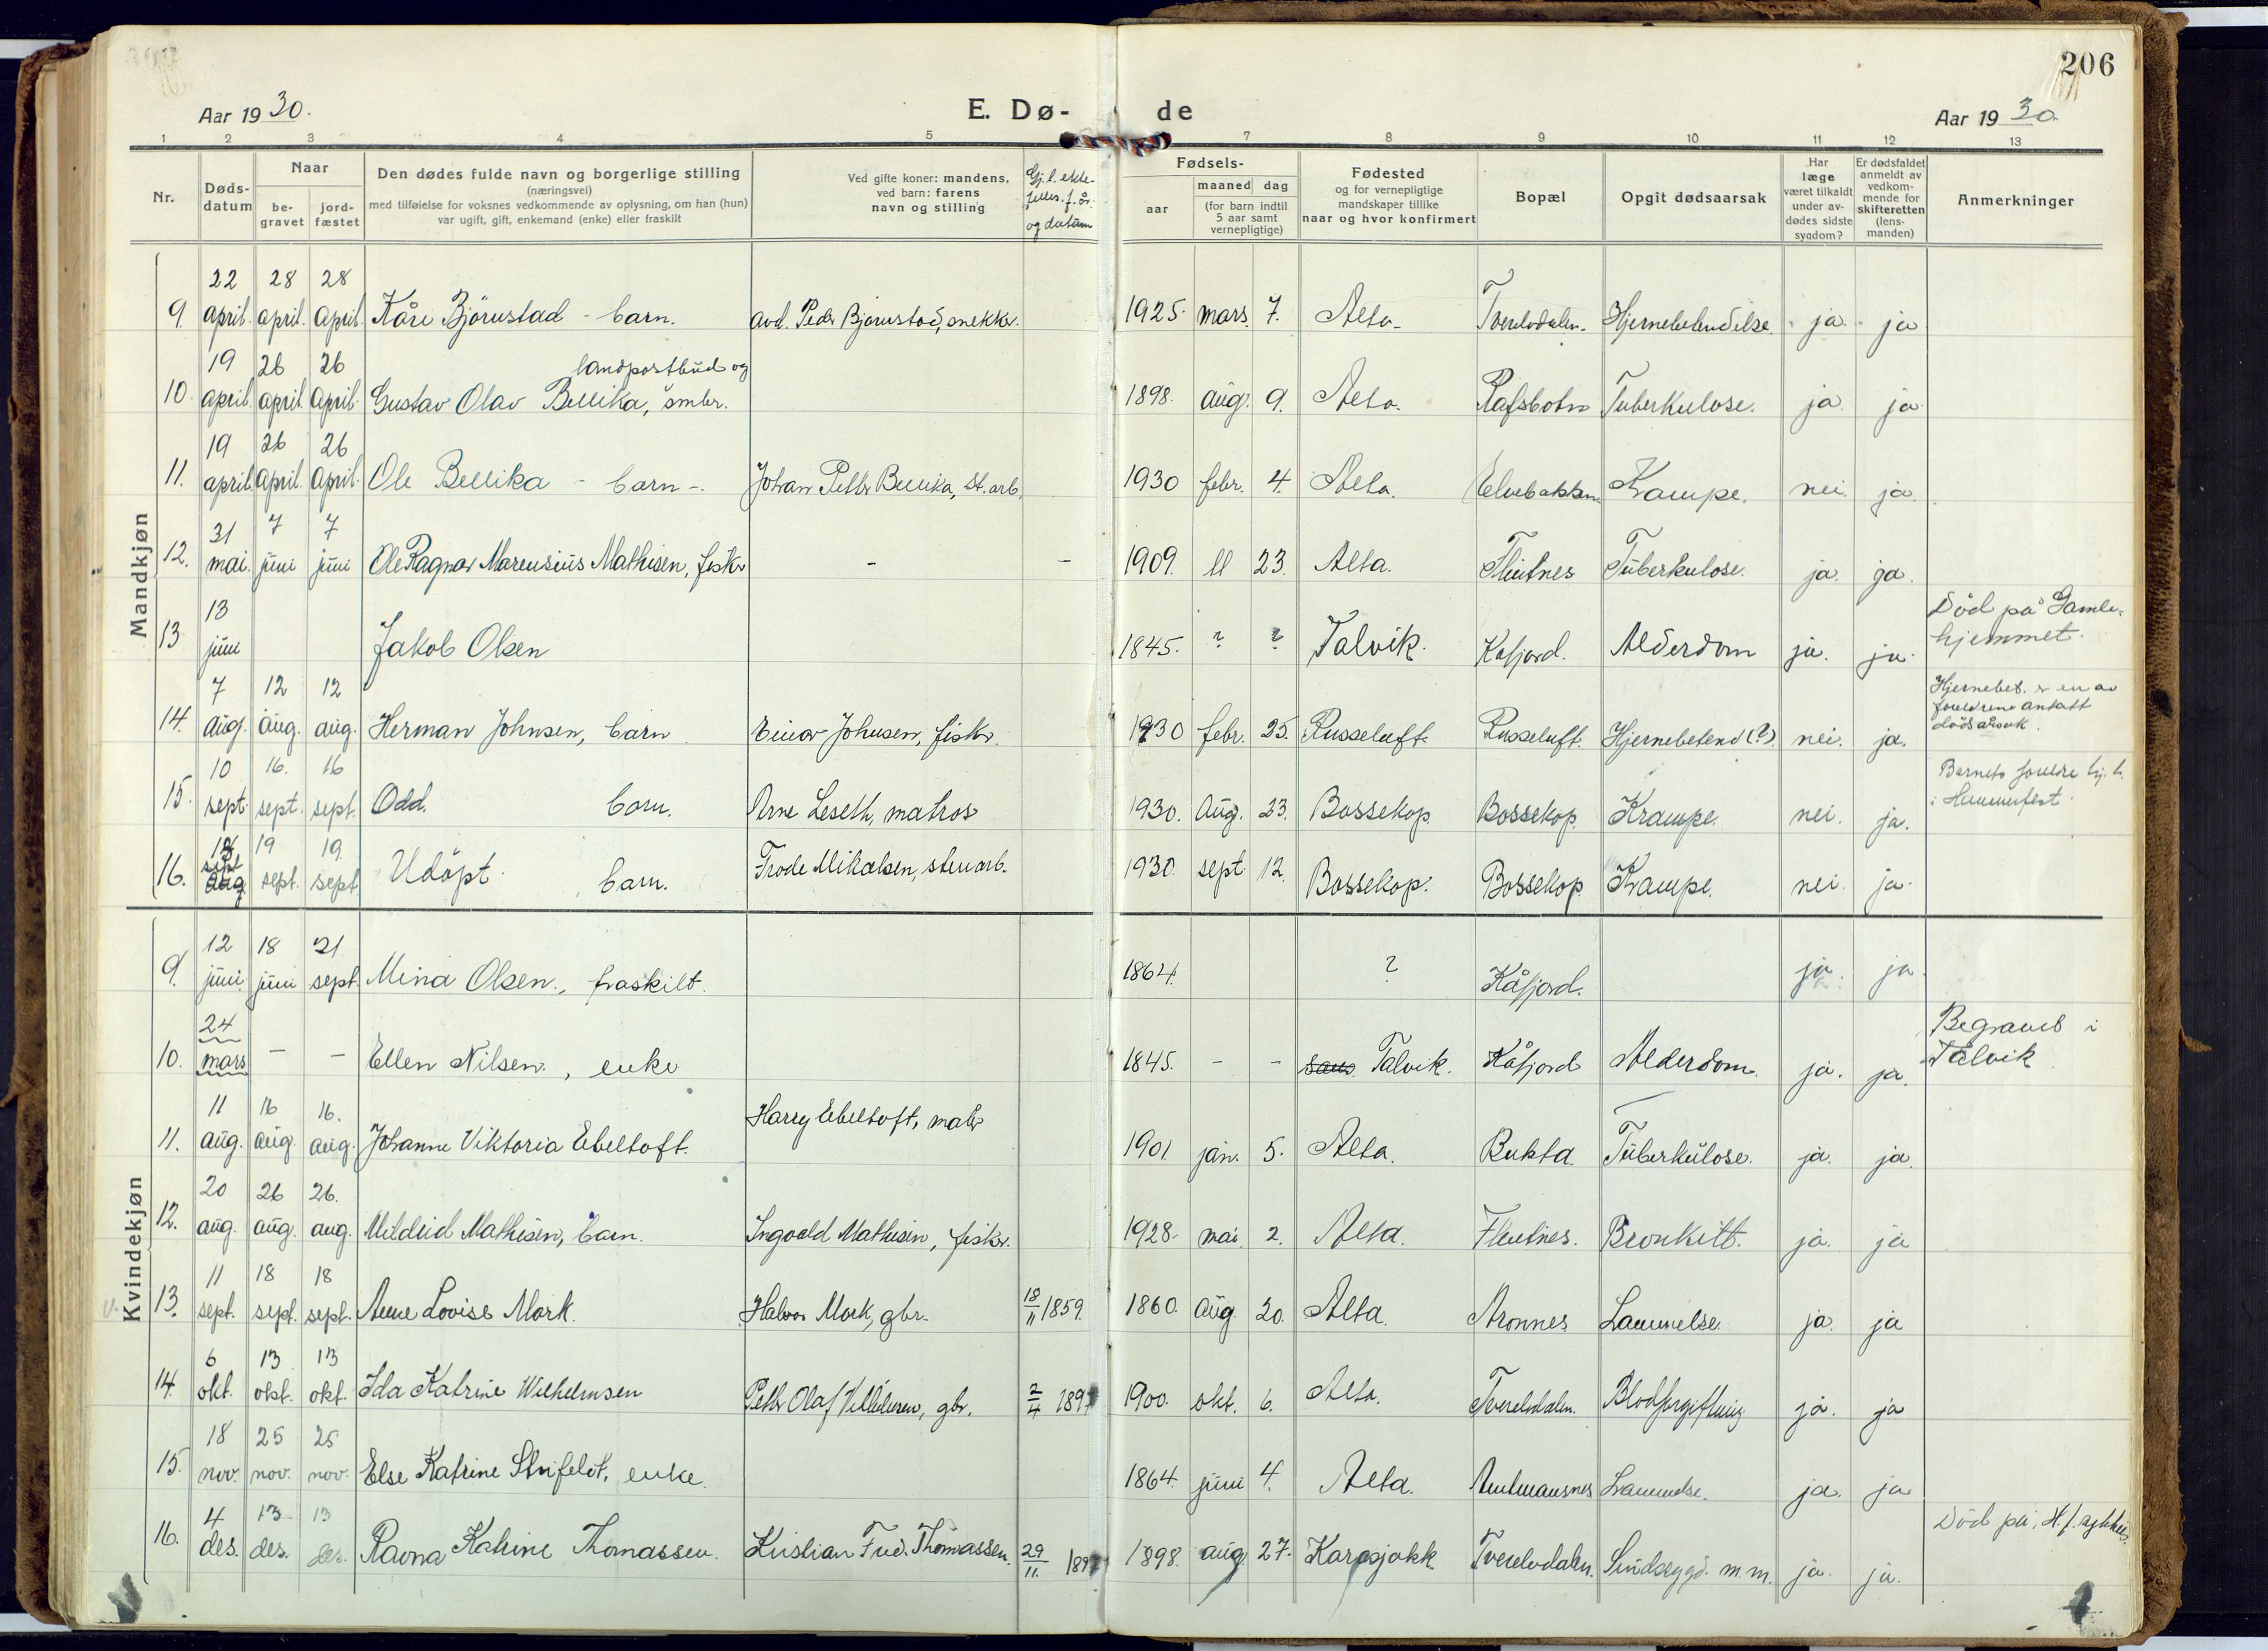 206
Aar 1930.
E. Dø- de
Aar 1930
1 2 3 4 5 7 8 9 10 11 12 13
Nr.
Døds-
datum
Naar
be-
gravet
jord-
fæstet
Den dødes fulde navn og borgerlige stilling
(næringsvei)
med tilføielse for voksnes vedkommende av oplysning, om han (hun)
var ugift, gift, enkemand (enke) eller fraskilt
Ved gifte koner: mandens,
ved barn: farens
navn og stilling
Gj.l. ekte-
felles f. år
og datum
Fødsels-
aar
maaned dag
(for barn indtil
5 aar samt
vernepligtige)
Fødested
og for vernepligtige
mandskaper tillike
naar og hvor konfirmert
Bopæl
Opgit dødsaarsak
Har
læge
været tilkaldt
under av-
dødes sidste
sygdom?
Er dødsfaldet
anmeldt av
vedkom-
mende for
skifteretten
(lens-
manden)
Anmerkninger
Mandkjøn
22 28 28
9. april. april. april. Kåre Björnstad - barn. avd. Peder Bjørnstad, snekker. 1925. mars. 7. Alta. Tverelvdalen. Hjernebetendelse. ja. ja
19 26 26 landpostbud og
10. april. april. april. Gustav Olav Bellika, småbr. 1898. aug. 9. Alta. Rafsbotn Tuberkulose. ja. ja
19 26 26
11. april. april. april. Ole Bellika - barn -. Johan Petter Bellika, st.arb. 1930 febr. 4. Alta. Elvebakken. Krampe. nei. ja.
31 7 7
12. mai. juni juni Ole Ragnar Marensius Mathisen, fisker - - 1909. 11 23. Alta. Flintnes Tuberkulose. ja. ja.
13
13 juni Jakob Olsen 1845. ? ? Talvik. Kåfjord. Alderdom ja. ja. Död på Gamle-
hjemmet.
7 12 12
14. aug. aug. aug. Herman Johnsen, barn Einar Johnsen, fisker. 1930 febr. 25. Russeluft. Russeluft. Hjernebetend(?). nei. ja. Hjernebet. er en av
foreldrene antatt
dødsårsak.
10 16. 16
15. sept. sept. sept. Odd. barn. Arne Leseth, matros 1930. Aug. 23. Bossekop Bossekop. Krampe. nei. ja. Barnets foreldre hj.h.
i Hammerfest.
18 19 19.
sept
16. aug. sept. sept Udöpt. barn. Frode Mikalsen, stenarb. 1930. sept. 12. Bossekop. Bossekop Krampe. nei. ja.
Kvindekjøn
12 18 21
9. juni. juni sept. Mina Olsen., fraskilt. 1864. ? Kåfjord. ja. ja
24
10. mars - - Ellen Nilsen., enke 1845. - - Talvik. Kåfjord Alderdom. ja. ja. Begravet i
Talvik
11 16 16.
11. aug. aug aug. Johanne Viktoria Ebeltoft. Harry Ebeltoft, maler 1901 jan. 5. Alta. Bukta. Tuberkulose. ja. ja.
20 26 26.
12. aug. aug. aug. Mildrid Mathisen, barn. Ingvald Mathisen, fisker. 1928. mai. 2. Alta. Flintnes. Bronkitt. ja. ja
11 18 18
13. sept. sept. sept. Anne Lovise Mork. Halvor Mork, gbr. 18/11 1859. 1860. aug. 20. Alta. Aronnes Lammelse. ja. ja
6 13 13
14. okt. okt. okt. Ida Katrine Wilhelmsen Petter Olaf Vilhelmsen, gbr. 2/4 189 1900. okt. 6. Alta. Tverelvdalen. Blodforgiftning ja. ja
18 25 25
15. nov. nov. nov. Else Katrine Strifeldt, enke. 1864. juni 4. Alta. Amtmannsnes Lammelse. ja. ja
4 13 13
16. des. des. des. Ravna Katrine Thomassen. Kristian Fred. Thomassen. 29/11. 189 1898. aug 27. Karasjokk Tverelvdalen. Sindssygd. m.m. ja. ja. Död på H.f. sykehus.